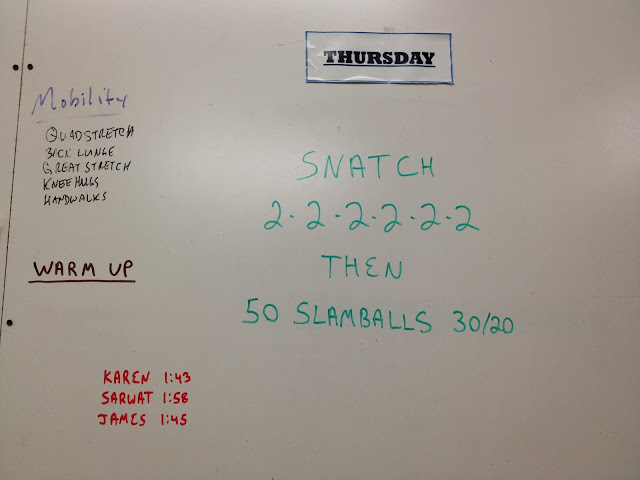 THURSDAY
Mobility
QUADSTRETCH
BACK LUNGE
GREAT STRETCH
KNEE HUGS
HANDWALKS
SNATCH
2-2-2-2-2-2
THEN
50 SLAMBALLS 30/20
WARM UP
KAREN 1:43
SARWAT 1:58
JAMES 1:45